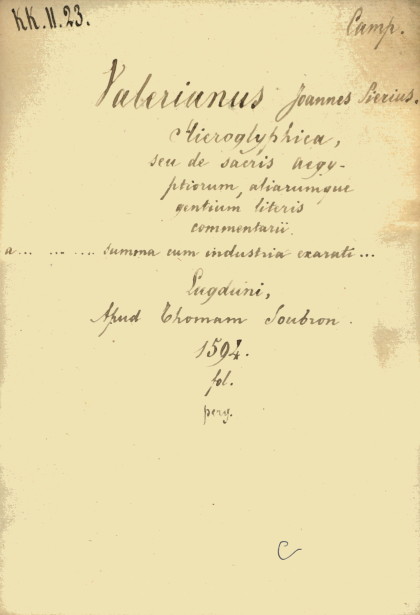 KK.II.23.
Camp.
Valerianus Joannes Pierius.
Hieroglyphica,
seu de sacris Aegy-
ptiorum, aliarumque
gentium literis
commentarii.
a... ... .... summa cum industria exarati ...
Lugduni,
Apud Thomam Soubron.
1594.
fol.
perg.
C